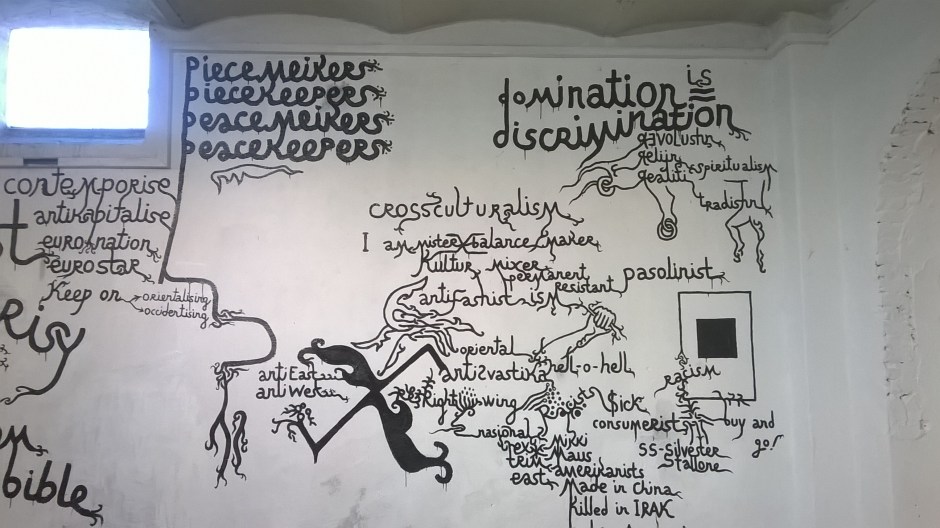 piecemeikers
piecekeepers
peacemeikers
peacekeepers
domination is
discrimination
revolushn
relijn
realiti
spiritualism
tradishn
contemporise
antikapitalise
euronation
eurostar
Keep on
orientalising
occidertising
crossculturalism
I am mister balance maker
Kultur mixer
permanent
resistant
pasolinist
antifashist ism
oriental
hell-o-hell
antisvastika
anti East
anti West
Right wing
racism
$ick
consumerist
buy and
go!
SS-Silvester
Stallone
nasional
Mikki
Maus
trim
amerikanists
east
Made in China
Killed in IRAK
bible